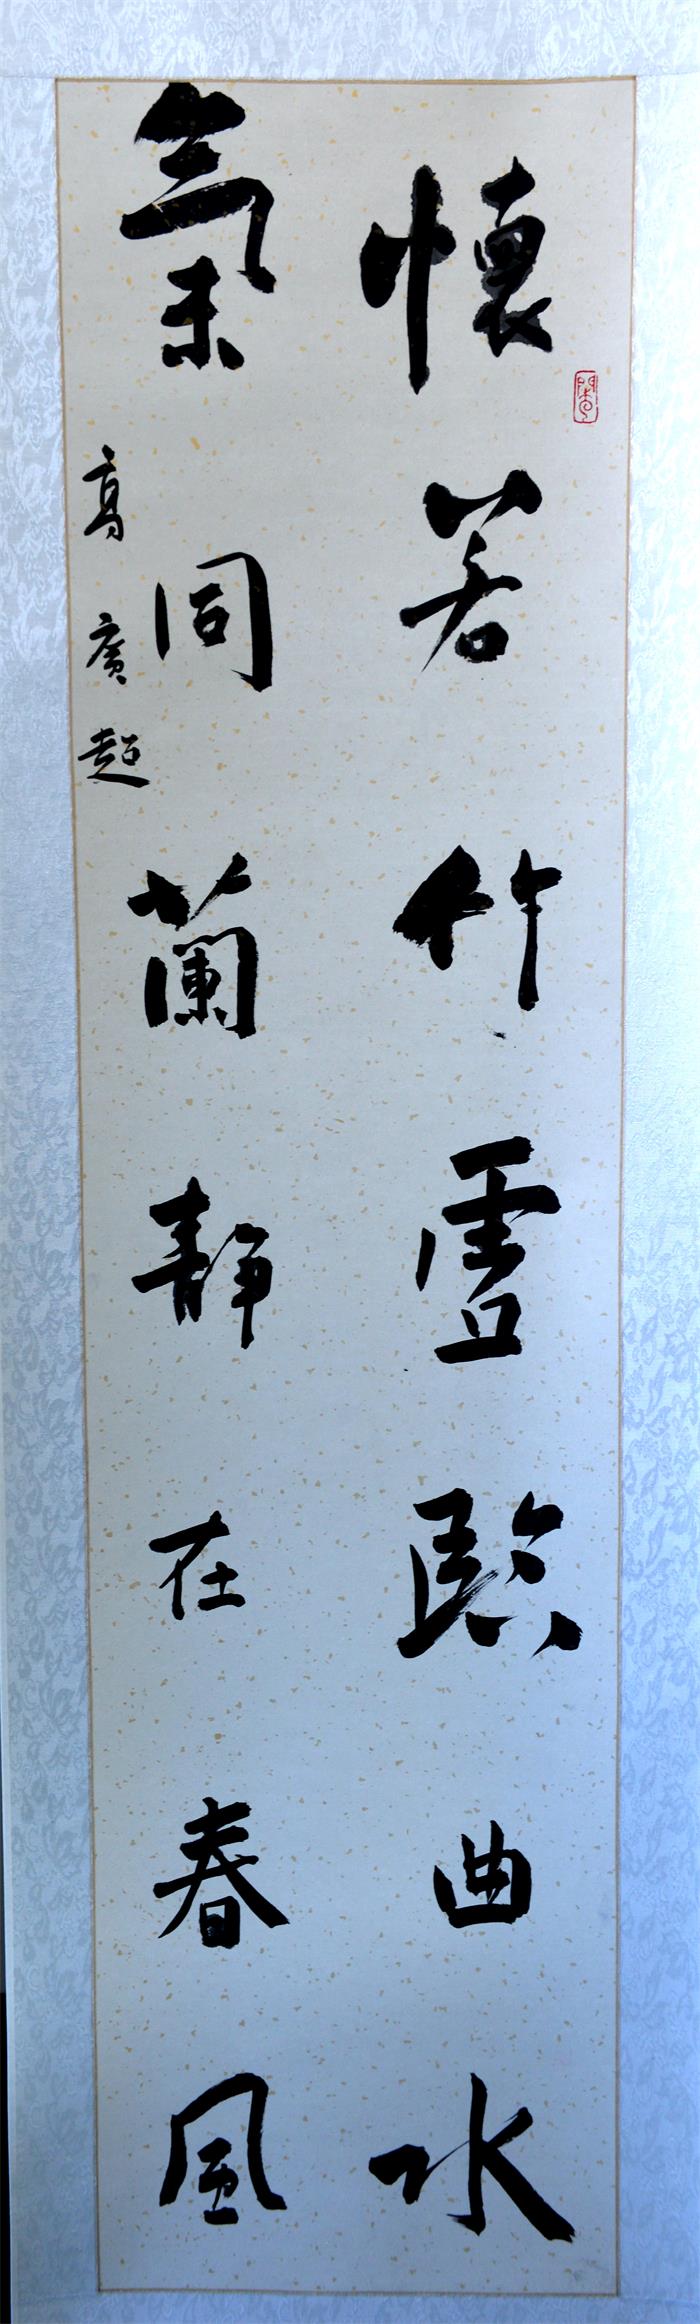 懷若竹虛臨曲水
氣同蘭靜在春風
高廣超